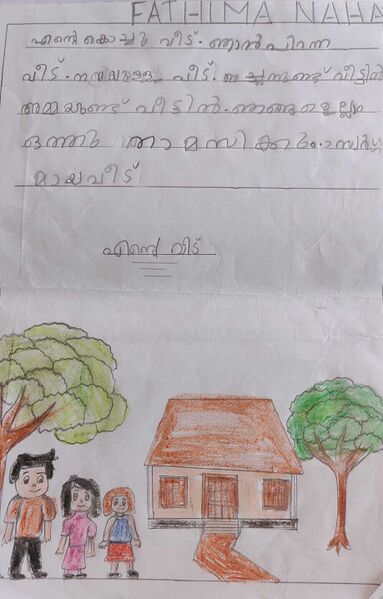 FATHIMA NAHA
എന്റെ കൊച്ചു വീട്. ഞാൻ പിറന്ന
വീട്. നന്മയുള്ള വീട്. അച്ഛനുണ്ട് വീട്ടിൽ
അമ്മയുണ്ട് വീട്ടിൽ. ഞങ്ങളെല്ലാം
ഒത്തു താമസിക്കും. സ്വർഗ്ഗ
മായ വീട്
എന്റെ വീട്